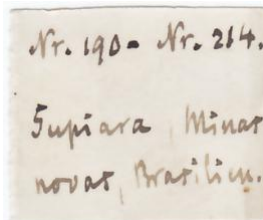 Nr. 190 - Nr. 214.
Supiara, Minas
novas, Brasilien.